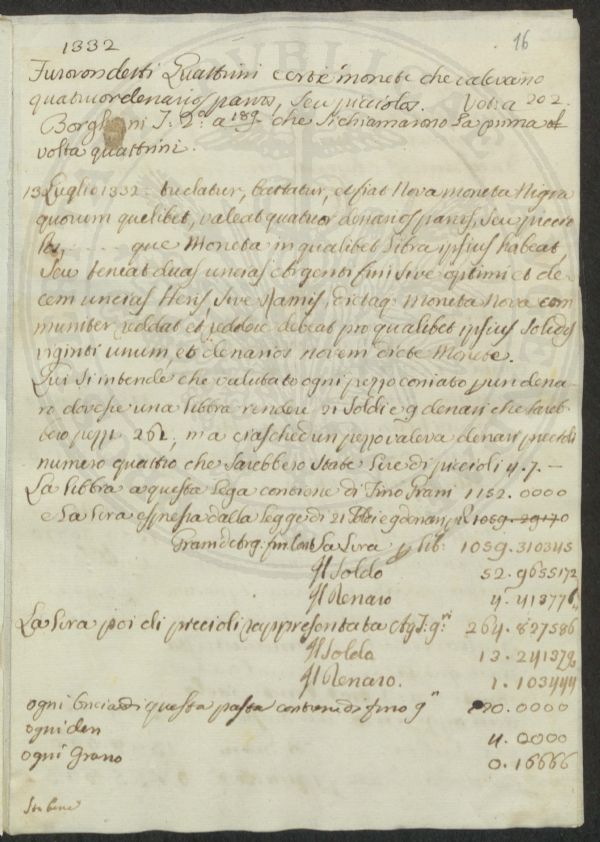 16
1332
Furon detti Quattrini certe monete che valevano
quatuor denarios parvos, seu picciolos. Vol: a 202.
Borghini T: 2º a 189 che si chiamarono la prima
volta quattrini.
13 Luglio 1332: cudatur, battatur, et fiat Nova moneta Nigra
quorum quelibet, valeat quatuor denarios parvos, seu piccio
los, ..... que Moneta in qualibet Libra ipsius habeat,
seu teneat duas uncias Argenti fini sive optimi et de-
cem uncias Heris sive Ramis, dictaq. Moneta Nova com
muniter reddat et reddere debeat pro qualibet ipsius Solidos
viginti unum et denarios novem dicte Monete.
Qui si intende che valutato ogni pezzo coniato p un dena-
ro dovesse una libbra rendere 21 Soldi e 9 denari che sareb-
bero pezzi 261, ma ciascheun pezzo valeva denari piccioli
numero quattro che sarebbero state Lire di piccioli 4.7.—
La libbra a questa lega contiene di Fino Grani 1152.0000
e la Lira espressa dalla legge di 21 e 9 denari 1059.29170
Grani d'Arg: fin La Lira p lib: 1059.310345
Il Soldo 52.9655172
Il Denaro 4.413776
La Lira poi di piccioli rappresentata gni 264.827586
Il Soldo 13.241379
Il Denaro. 1.103444
ogni Oncia di questa pasta contiene di fino gn 020.0000
ogni den 4.0000
ogni Grano 0.16666
Sta bene